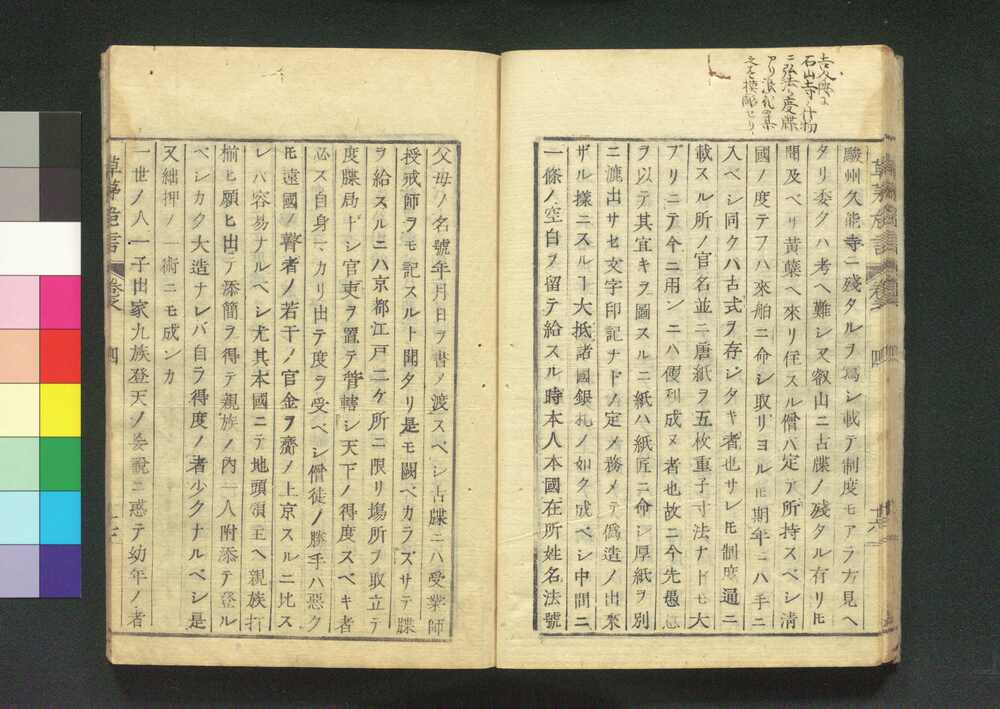 石山寺ノ什物
駿州久能寺ニ殘タルヲ寫シ載テ制度モアラ方見ヘ
タリ委クハ考ヘ難シ又叡山ニ古牒ノ殘タル有リト
聞及ベリ黄蘗ヘ來リ住スル僧ハ定テ所持スベシ清
國ノ度テフハ來舶ニ命シ取リヨルトモ期年ニハ手ニ
入ベシ同クハ古式ヲ存シタキ者也サレトモ制度通ニ
載スル所ノ官名並ニ唐紙ヲ五枚重子寸法ナドモ大
ブリニテ今ニ用ンニハ便利成ヌ者也故ニ今先愚意
ヲ以テ其宜キヲ圖スルニ紙ハ紙匠ニ命シ厚紙ヲ別
ニ漉出サセ文字印記ナドノ定メ務メテ偽造ノ出來
ザル樣ニスルヿ大抵諸國銀札ノ如ク成ベシ中間ニ
一條ノ空白ヲ留テ給スル時本人本國在所姓名法號
父母ノ名號年月日ヲ書ノ渡スベシ古牒ニハ受業師
授戒師ヲモ記スルト聞タリ是モ闕ベカラズサテ牒
ヲ給スルニハ京都江戸二ケ所ニ限リ場所ヲ取立テ
度牒局ナドシ官吏ヲ置テ管轄シ天下ノ得度スベキ者
必ス自身マカリ出テ度ヲ受ベシ僧徒ノ勝手ハ惡ク
トモ遠國ノ瞽者ノ若干ノ官金ヲ齎ノ上京スルニ比ス
レバ容易ナルベシ尤其本國ニテ地頭領主ヘ親族打
揃ヒ願ヒ出テ添簡ヲ得テ親族ノ內一人附添テ登ル
ベシカク大造ナレバ自ラ得度ノ者少クナルベシ是
又絀押ノ一術ニモ成ンカ
一世ノ人一子出家九族登天ノ妄說ニ惑テ幼年ノ者
草茅危言
卷之
四